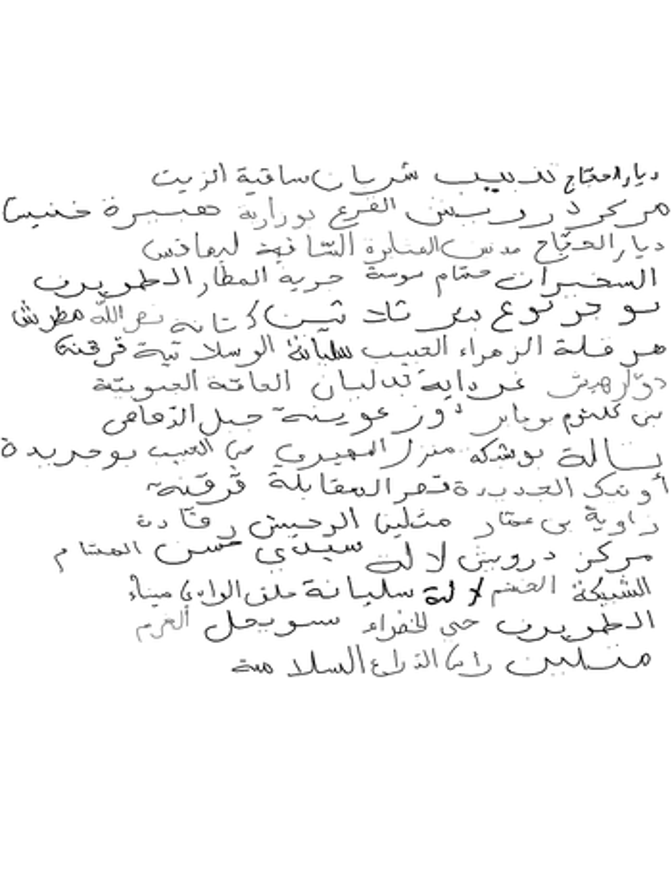 ديار الحجّاج تدبيب شريان ساقية الزيت
مركز درويش القريع بورارية هبيرة خنيس
ديار الحجّاج مدنين المنابرة الشافية ليماذس
السخيرات حشام سوسة حرية المطار الطويرف
بوجربوع بئر شاد ثين كتانة نصر الله مطرش
هرقلة الزهراء الحبيب سليانة الوسلاتية قرقنة
دوّار هيش غرداية تدلبان العامّة الجنوبيّة
بني كلثوم بوجابر دوز عوينة جبل الدّهامي
بتالة بوشكه منزل المهيري حي الحبيب بوجريدة
أوتيك الجديدة قصر المقابلة قرقنة
زاوية بن عمّار متلين الرحيش رقادة
مركز درويش لالة سيدي حسن المشام
الشبيكة الخضم لالة سليانة ملق الوادي ميناء
الطويرف حي الخضراء سويحل القرم
متلين راس الذراع السلامة